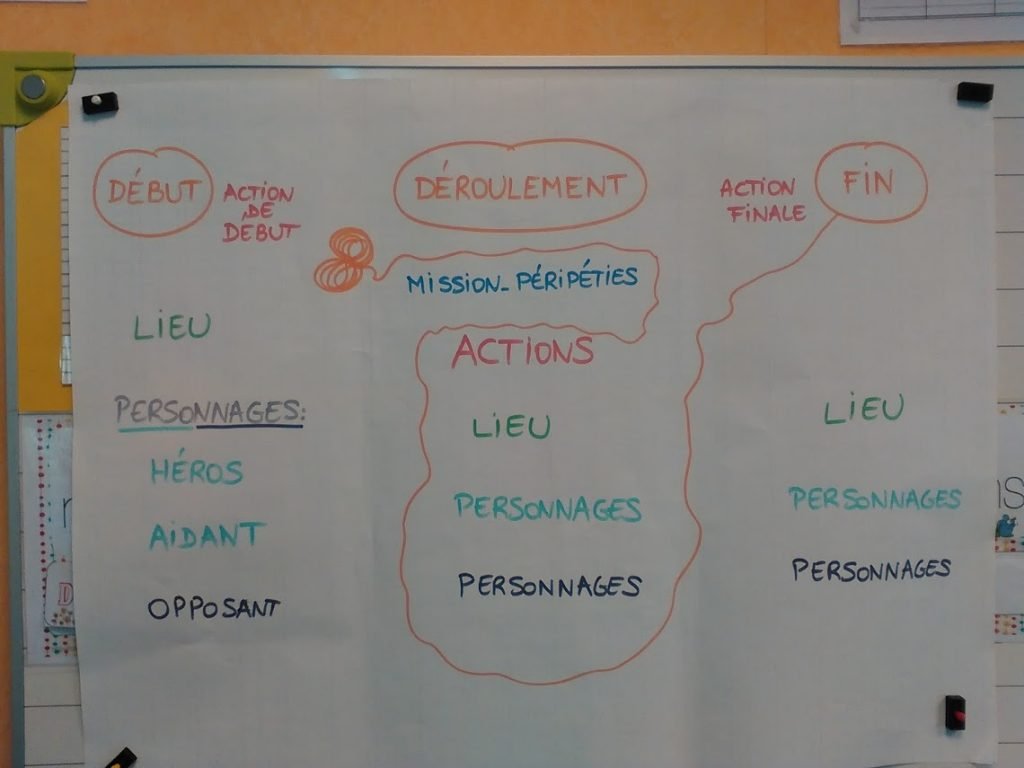 DÉBUT
ACTION
DE
DEBUT
LIEU
PERSONNAGES:
HÉROS
AIDANT
OPPOSANT
DÉROULEMENT
MISSION-PÉRIPÉTIES
ACTIONS
LIEU
PERSONNAGES
PERSONNAGES
ACTION
FINALE
FIN
LIEU
PERSONNAGES
PERSONNAGES